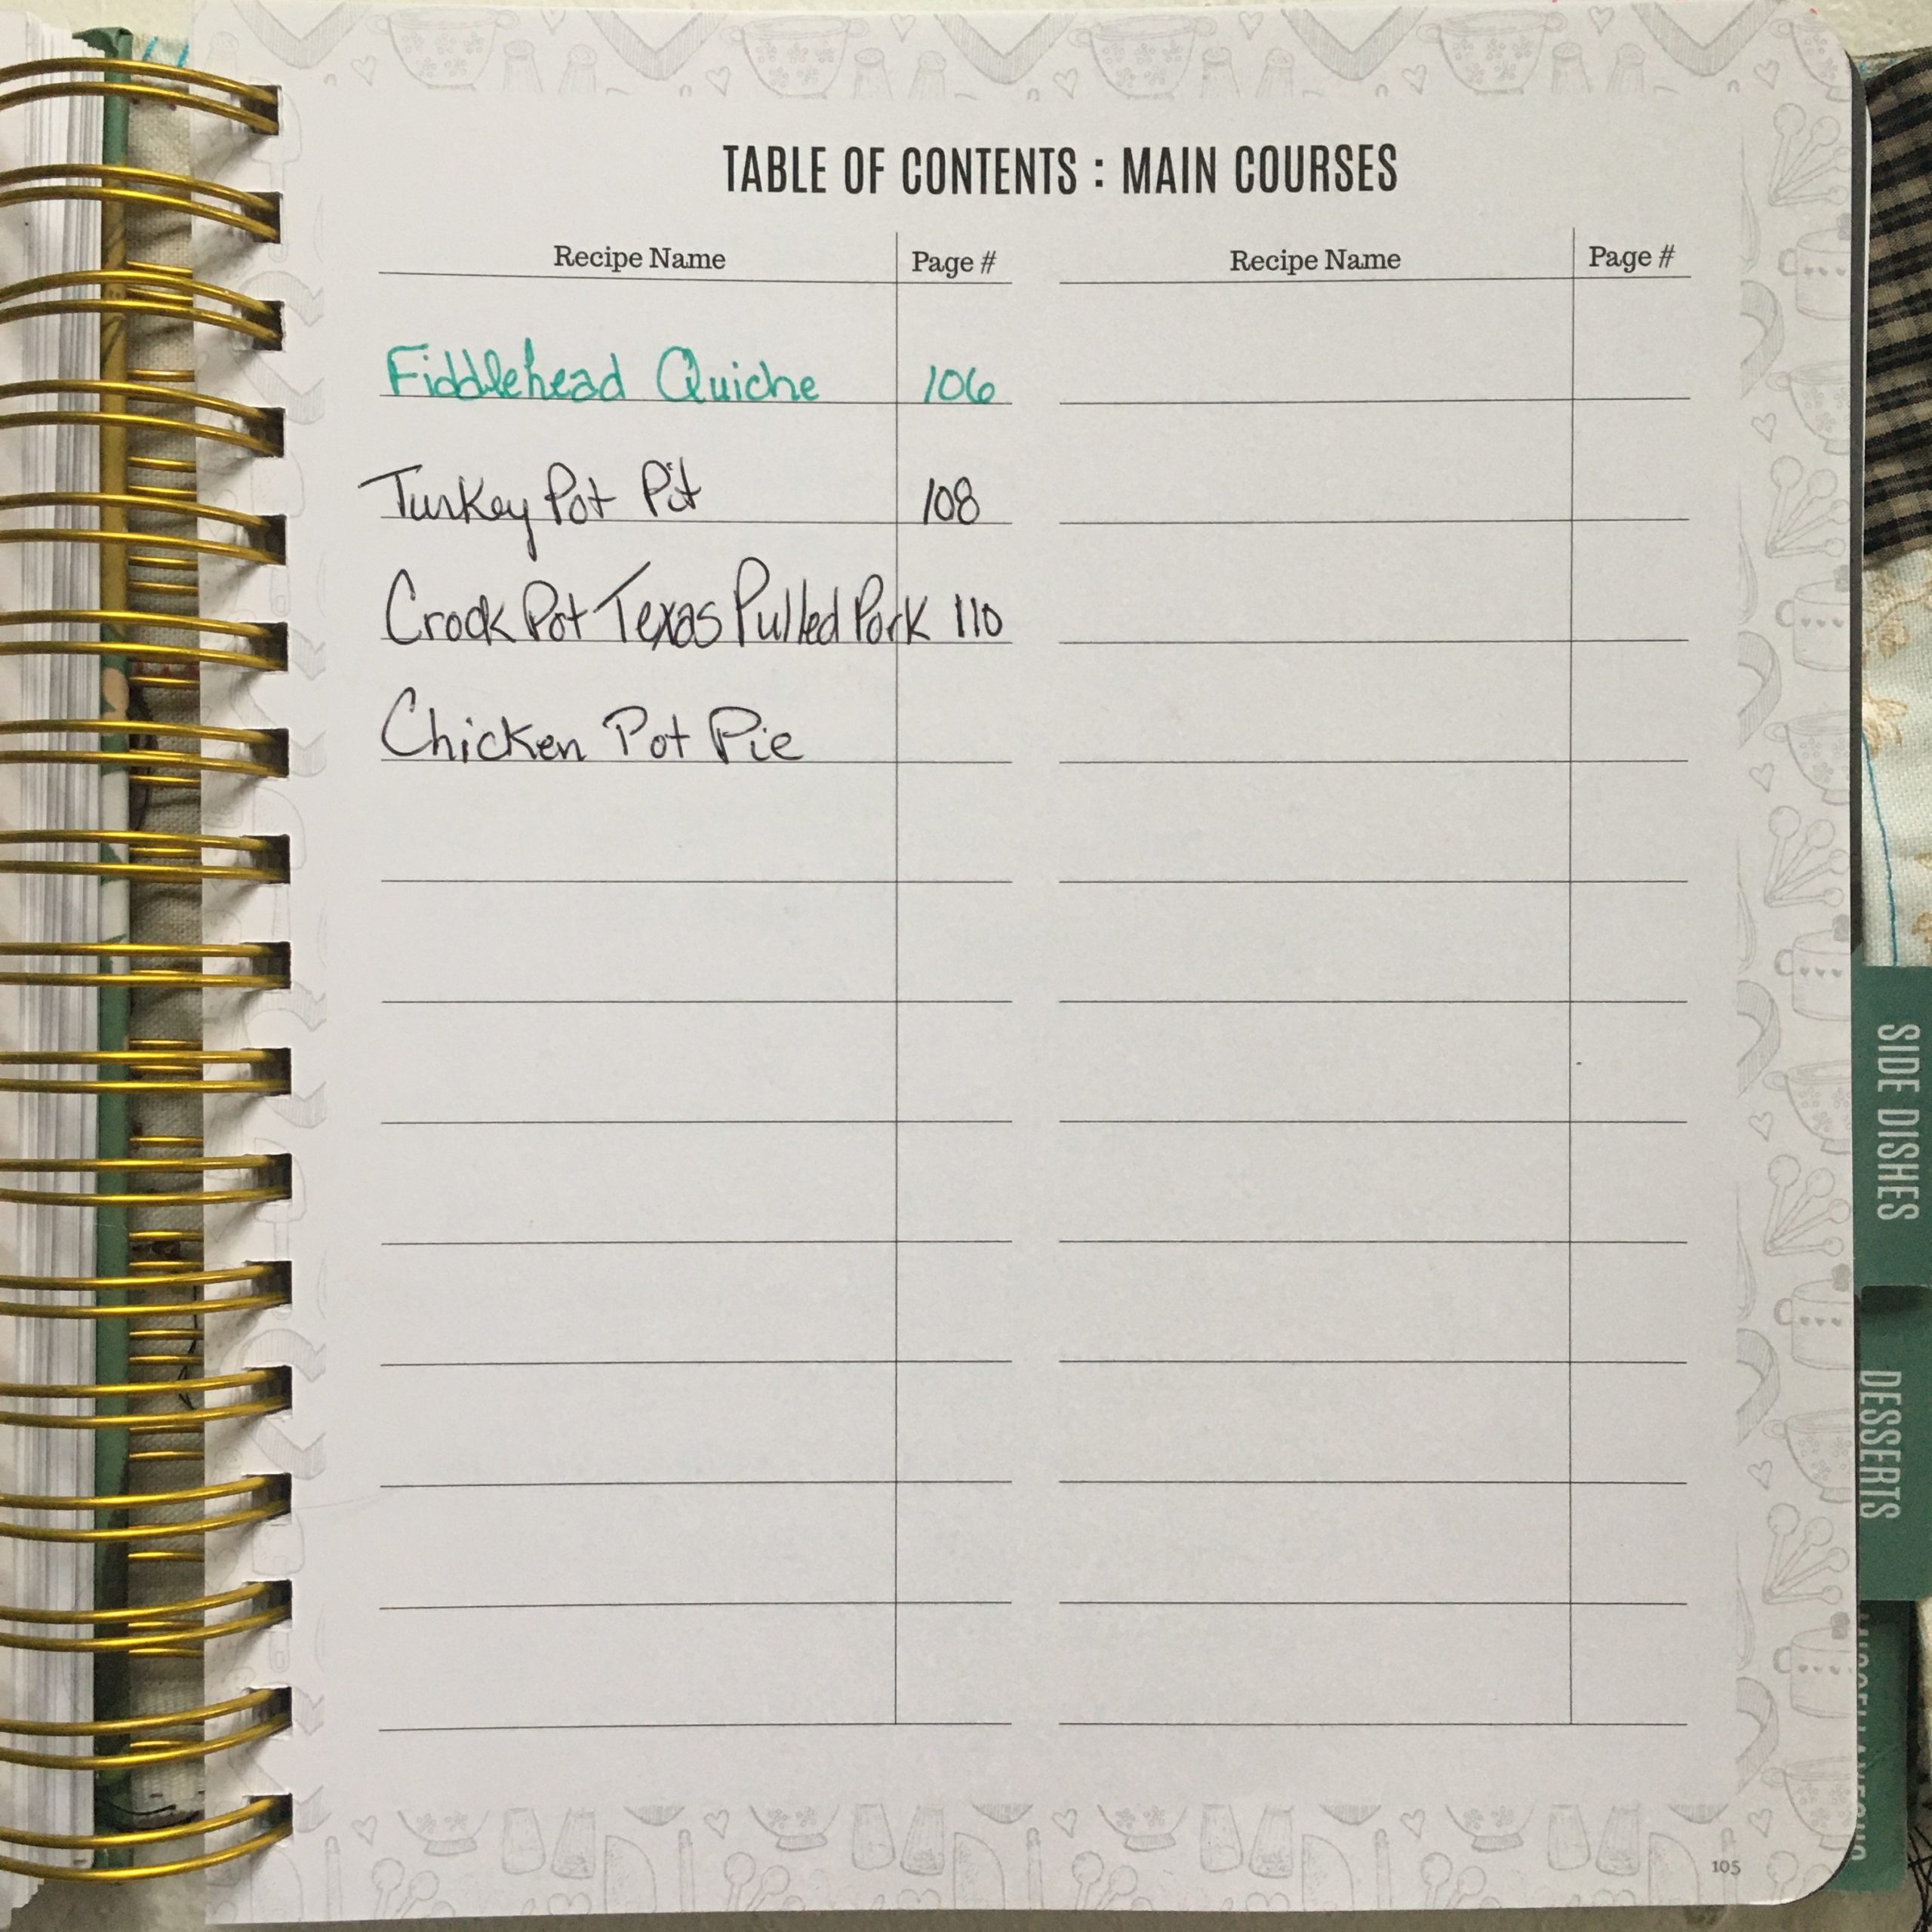 TABLE OF CONTENTS : MAIN COURSES
Recipe Name Page # Recipe Name Page #
Fiddlehead Quiche 106
Turkey Pot Pit 108
Crock Pot Texas Pulled Pork 110
Chicken Pot Pie
SIDE DISHES
DESSERTS
105